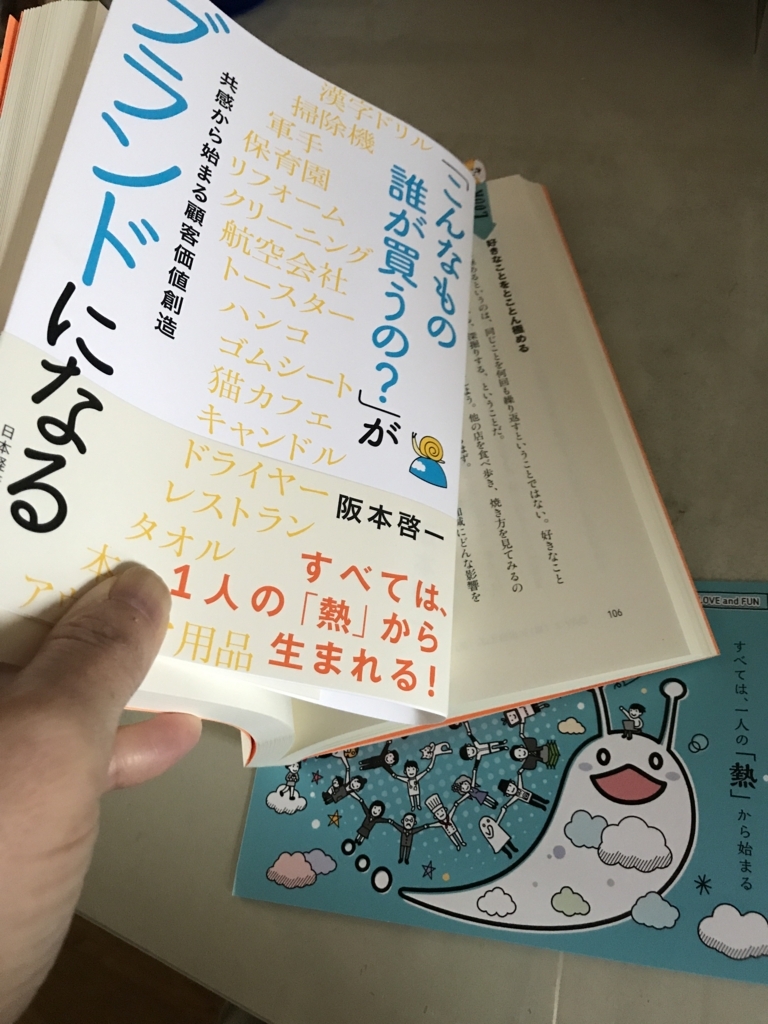 「こんなもの
誰が買うの?」が
ブランドになる
共感から始まる顧客価値創造
漢字ドリル
掃除機
軍手
保育園
リフォーム
クリーニング
航空会社
トースター
ハンコ
ゴムシート
猫カフェ
キャンドル
ドライヤー
レストラン
タオル
本
用品
阪本啓一
すべては、
1人の「熱」から
生まれる!
日本経
好きなことをとことん極める
めるというのは、同じことを何回も繰り返すということではない。好きなこと
深掘りする、ということだ。
よう。他の店を食べ歩き、焼き方を見てみるの
はず。
加減にどんな影響を
106
LOVE and FUN
すべては、一人の「熱」から始まる